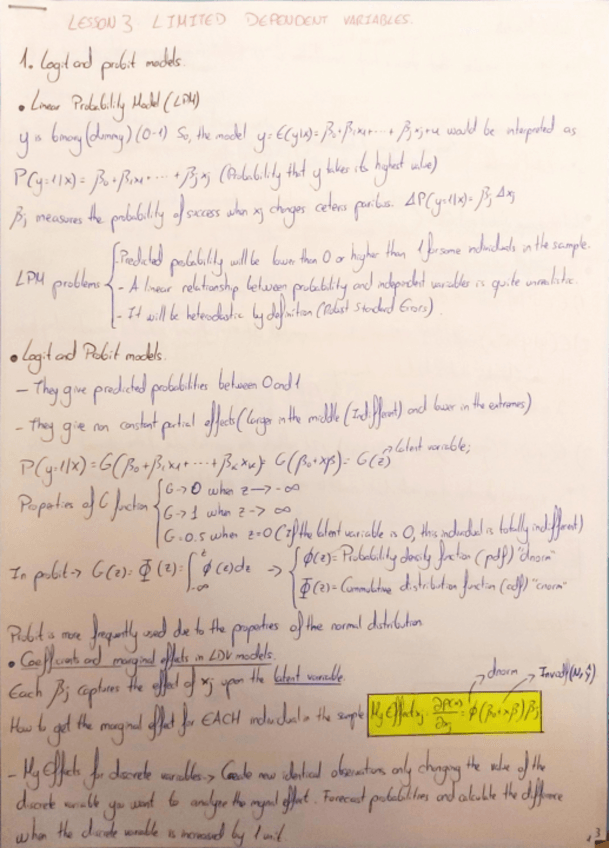 LESSON 3 LIMITED DEPENDENT VARIABLES.
1. Logit and probit models.
• Linear Probability Model (LPM)
y is binary (dummy) (0-1) So, the model y = E(y|x) = β₀ + β₁x₁ + ··· + βⱼxⱼ + u would be interpreted as
P(y=1|x) = β₀ + β₁x₁ + ··· + βⱼxⱼ (Probability that y takes its highest value)
βⱼ measures the probability of success when xⱼ changes ceteris paribus. ΔP(y=1|x) = βⱼ Δxⱼ
- Predicted probability will be lower than 0 or higher than 1 for some individuals in the sample.
LPM problems - A linear relationship between probability and independent variables is quite unrealistic.
- It will be heterodastic by definition (Robust Standard Errors)
• Logit and Probit models.
- They give predicted probabilities between 0 and 1
- They give non constant partial effects (larger in the middle (Indifferent) and lower in the extremes)
→ latent variable;
P(y=1|x) = G(β₀ + β₁x₁ + ··· + βₖxₖ) = G(β₀ + xβ) = G(z)
G → 0 when z → -∞
Properties of G function G → 1 when z → ∞
G = 0.5 when z = 0 (If the latent variable is 0, this individual is totally indifferent)
In probit → G(z) = Φ(z) = ∫_{-∞}^{z} ϕ(z)dz → ϕ(z) = Probability density function (pdf) "dnorm"
Φ(z) = Cummulative distribution function (cdf) "cnorm"
Probit is more frequently used due to the properties of the normal distribution
• Coefficients and marginal effects in LDV models.
dnorm Invcdf(N, ŷ)
Each βⱼ captures the effect of xⱼ upon the latent variable.
How to get the marginal effect for EACH individual in the sample Mg Effect xⱼ = ∂P(·)/∂xⱼ = ϕ(β₀ + xβ) βⱼ
- Mg Effects for discrete variables → Create new identical observations only changing the value of the
discrete variable you want to analyse the mginal effect. Forecast probabilities and calculate the difference
when the discrete variable is increased by 1 unit.
3